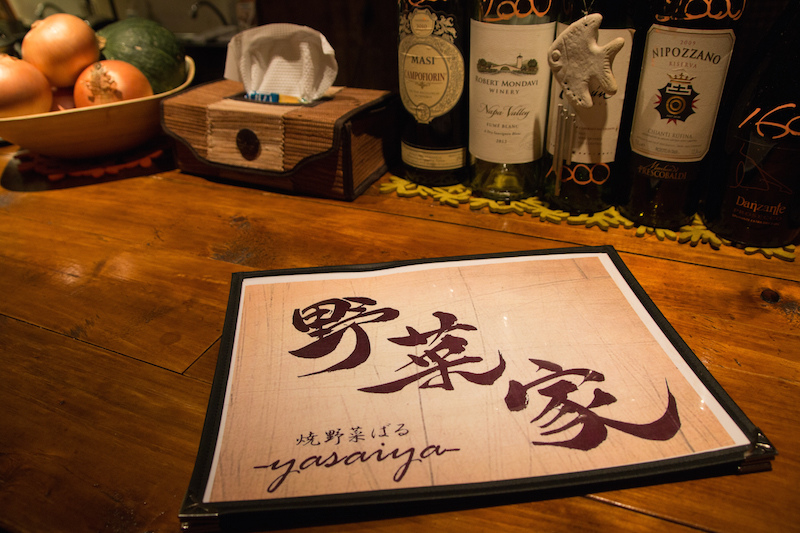 MASI
CAMPOFIORIN
ROBERT MONDAVI
WINERY
Napa Valley
FUMÉ BLANC
NIPOZZANO
RISERVA
CHIANTI RUFINA
FRESCOBALDI
Danzante
野菜家
焼野菜ばる
-yasaiya-